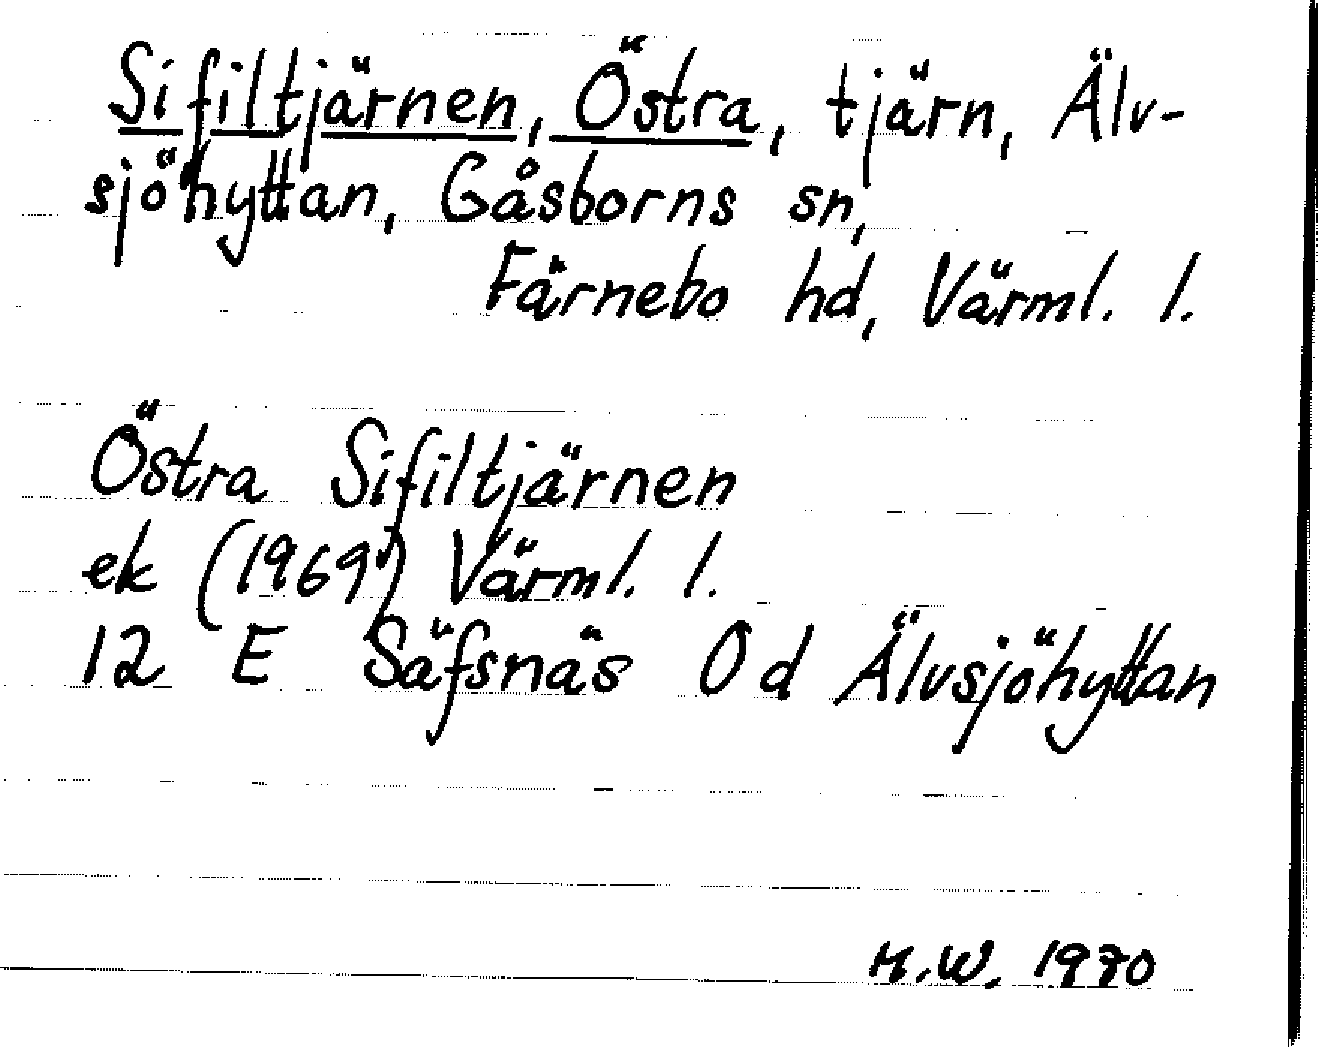 Sifiltjärnen, Östra, tjärn, Älv-
sjöhyttan, Gåsborns sn,
Färnebo hd, Värml. l.
Östra Sifiltjärnen
ek (1969) Värml. l.
12 E Säfsnäs 0 d Älvsjöhyttan
M.W. 1970